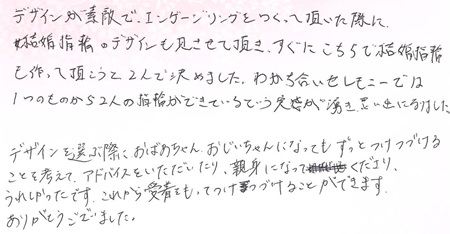 デザインが素敵で、エンゲージリングをつくって頂いた際に
結婚指輪のデザインも見させて頂き、すぐにこちらで結婚指輪
も作って頂こうと2人で決めました。わかち合いセレモニーでは
1つのものから2人の指輪ができているという実感が湧き、思い出になりました
デザインを選ぶ際に、おばあちゃん、おじいちゃんになってもずっとつけつづける
ことを考えて、アドバイスをいただいたり、親身になってくださり、
うれしかったです。これから愛着をもってつけつづけることができます。
ありがとうございました。